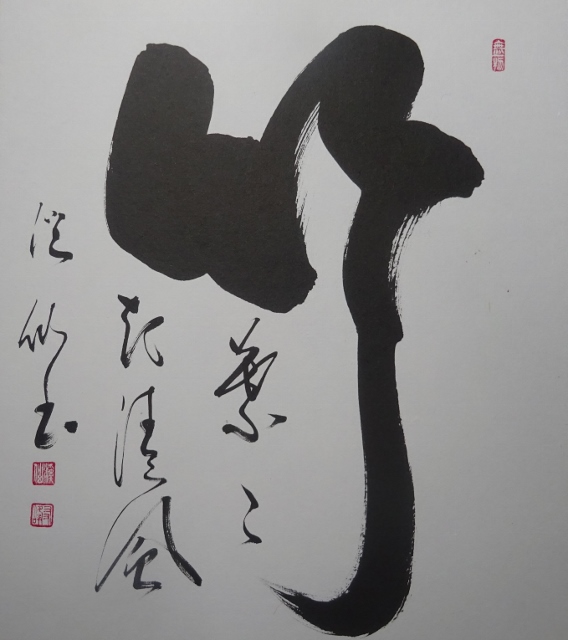 竹
葉々
起清風